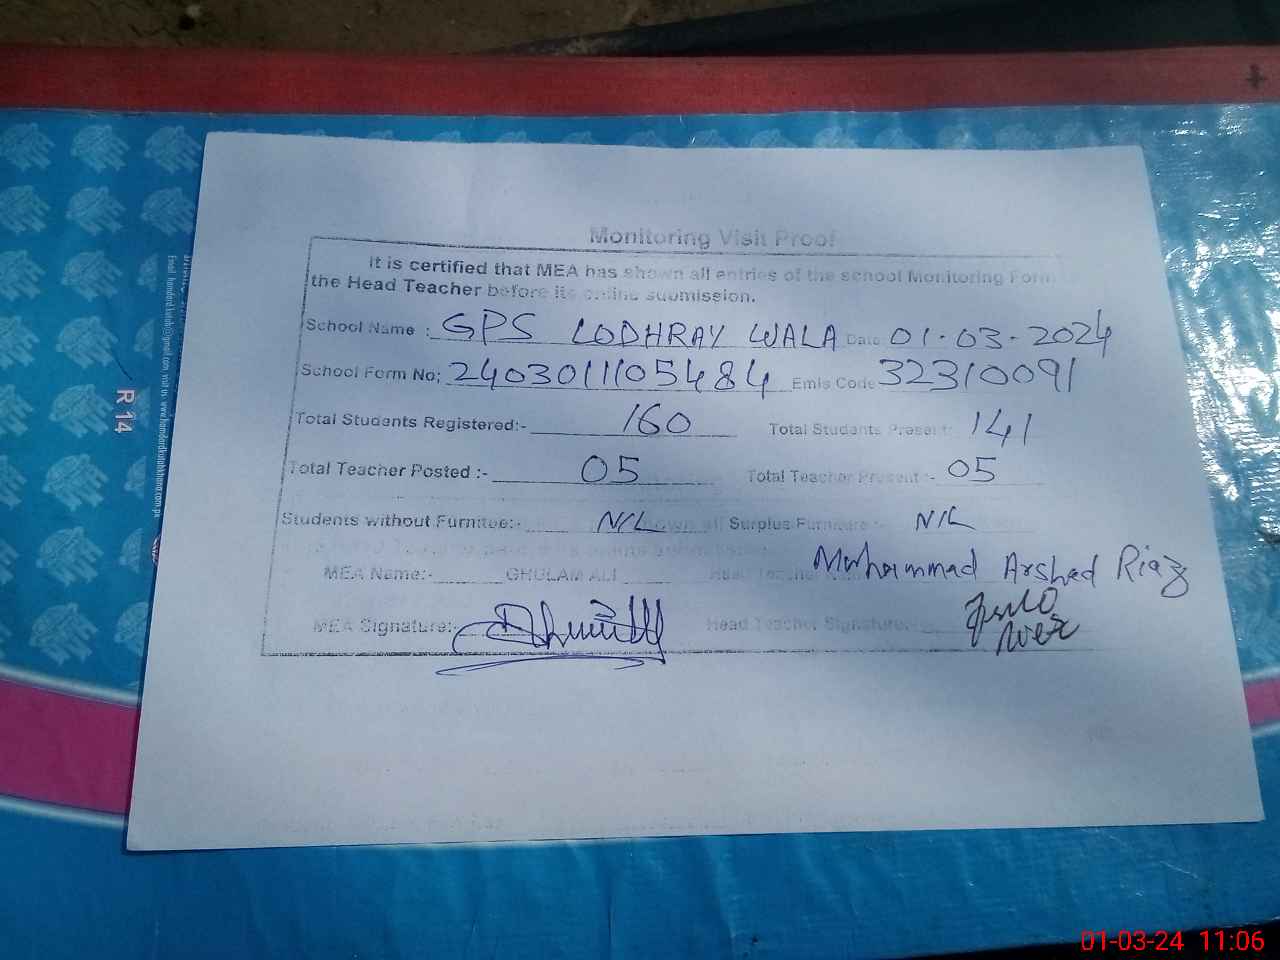 Monitoring Visit Proof
It is certified that MEA has shown all entries of the school Monitoring Form
the Head Teacher before its online submission.
School Name : GPS LODHRAY WALA Date: 01-03-2024
School Form No; 2403011105484 Emis Code 32310091
Total Students Registered:- 160 Total Students Present: 141
Total Teacher Posted :- 05 Total Teacher Present :- 05
Students without Furnitee:- NIL Surplus Furniture :- NIL
MEA Name:- GHULAM ALI Head Teacher Muhammad Arshad Riaz
MEA Signature:- Head Teacher Signature:
R 14
01-03-24 11:06